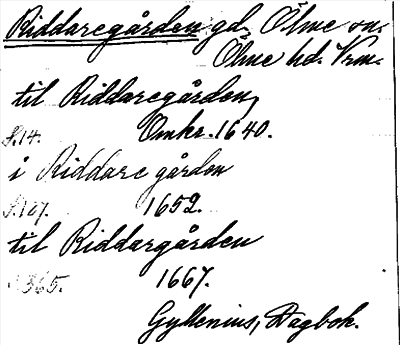 Riddaregården gd, Ölme sn.
Ölme hd. Vrm.
til Riddaregården,
S.14. Omkr. 1640.
i Riddare gården
S.107. 1652.
til Riddargården
365. 1667.
Gyllenius, Dagbok.